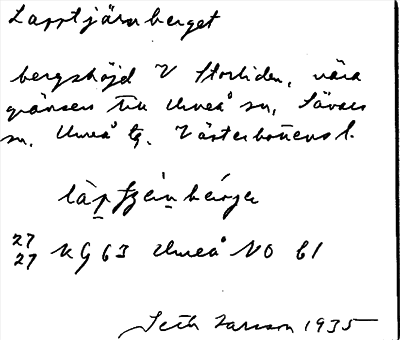 Lapptjärnberget
bergshöjd V Storliden, nära
gränsen till Umeå sn, Sävars
sn. Umeå tg. Västerbottens l.
27 KG 63 Umeå NO 61
27
Seth Larsson 1935